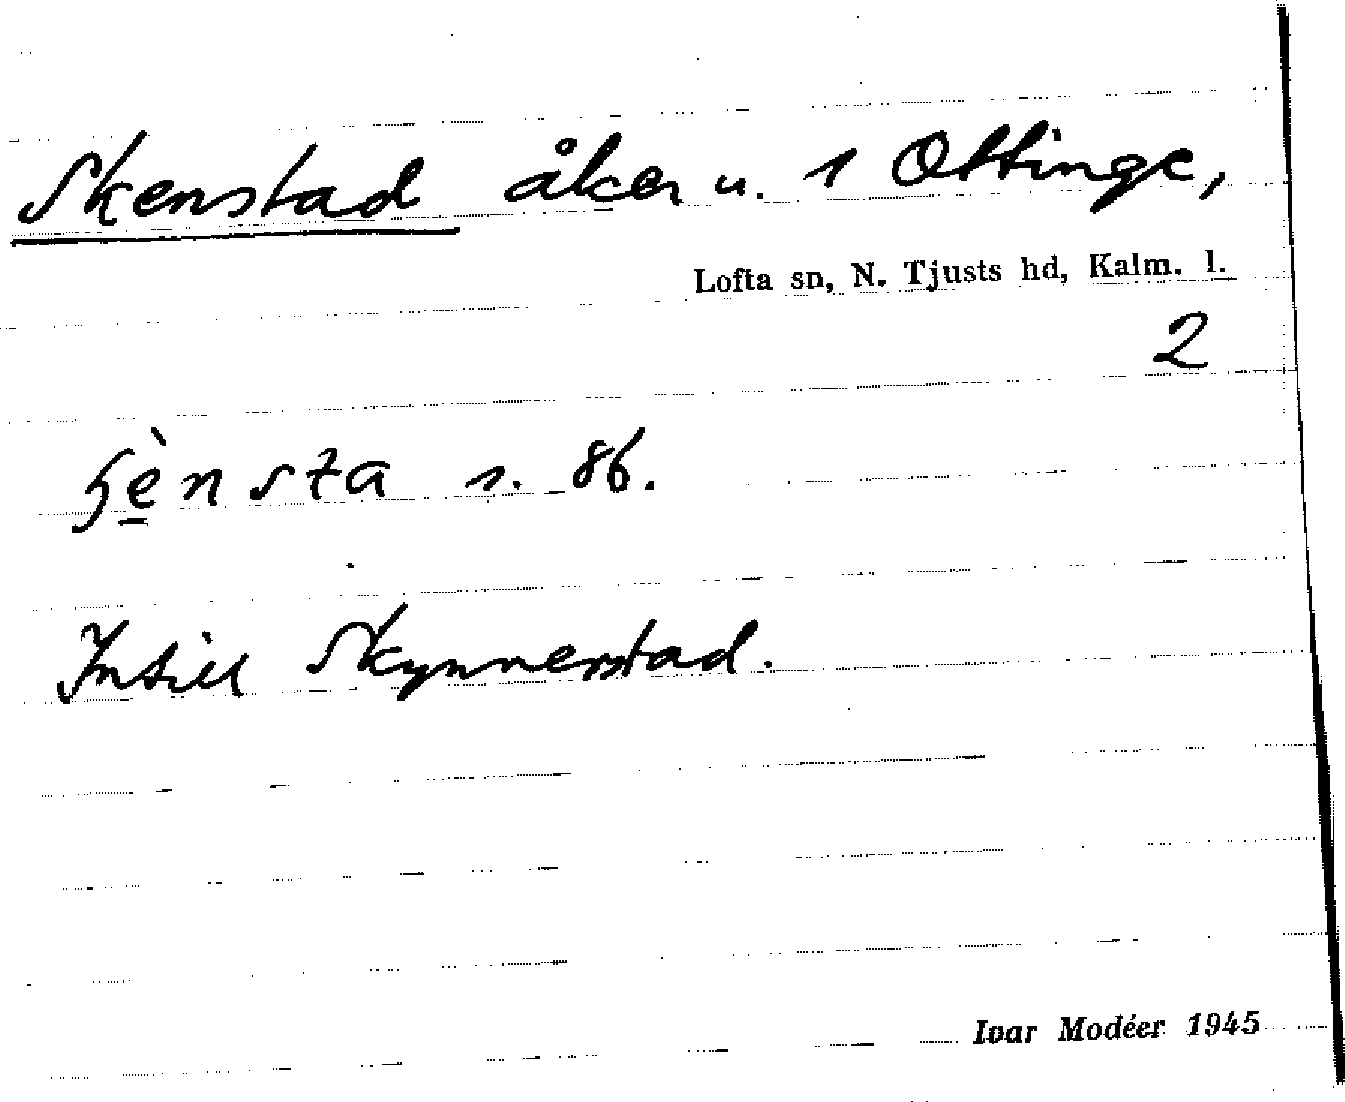 Skenstad åker u. 1 Ottinge,
Lofta sn, N. Tjusts hd, Kalm. l.
2
ɧè̠nsta s. 86.
Intill Skynnerstad.
Ivar Modéer 1945